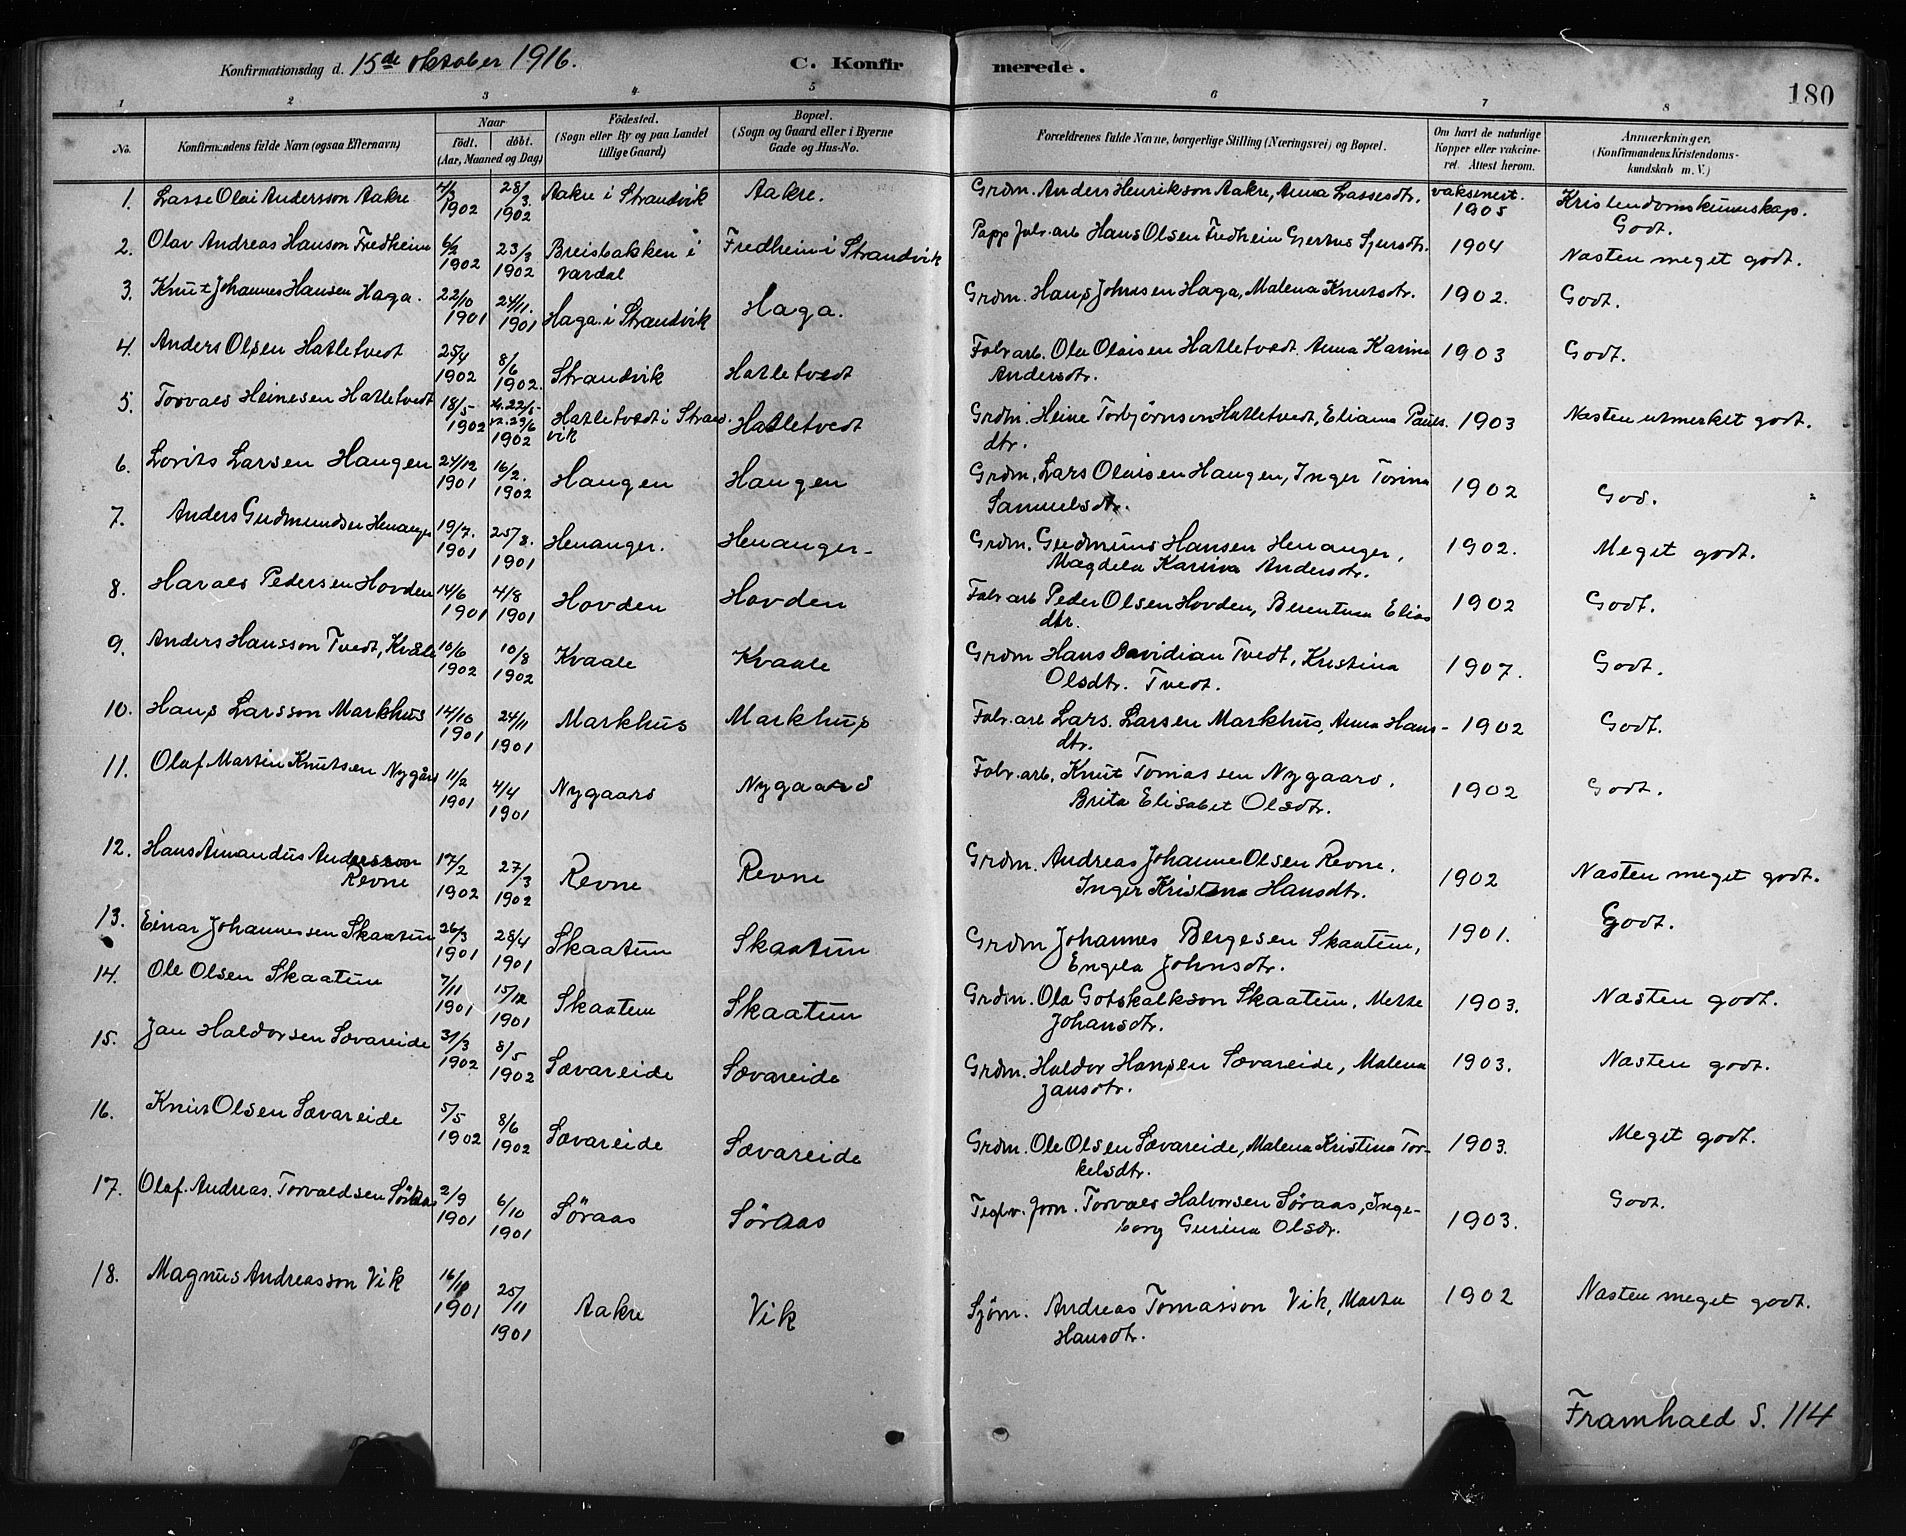 Konfirmationsdag d. 15de oktober 1916. C. Konfirmerede. 180
1 2 3 4 5 6 7 8
No. Konfirmandens fulde Navn (ogsaa Efternavn) Naar födt. döbt. (Aar, Maaned og Dag) Födested. (Sogn eller By og paa Landet tillige Gaard) Bopæl. (Sogn og Gaard eller i Byerne Gade og Hus-No. Forældrenes fulde Navne, borgerlige Stilling (Næringsvei) og Bopæl. Om havt de naturlige Kopper eller vakcineret. Attest herom. Anmærkninger, (Konfirmandens Kristendomskundskab m. V.)
1. Lasse Olai Andersson Aakre 4/2 1902 28/3. 1902 Aakre i Strandvik Aakre. Grdm. Anders Henrikson Aakre, Anna Lassesdtr. vaksinert. 1905 Kristendomskunnskap. Godt.
2. Olav Andreas Hanson Fredheim 6/2 1902 23/3 1902 Breisbakken i Vardal Fredheim i Strandvik Papp fabr. arb Hans Olsen Fredheim Gjertrus Sjursdtr. 1904 Nasten meget godt.
3. Knut Johannes Hansen Haga. 22/10 1901 24/11. 1901 Haga i Strandvik Haga. Grdm. Hans Johnsen Haga, Malena Knutsdtr. 1902. Godt.
4. Anders Olsen Hatletvedt 25/4 1902 8/6 1902. Strandvik Hatletvedt Fabr arb. Ola Olaisen Hatletvedt. Anna Karina Andersdtr. 1903 Godt.
5. Torvald Heinesen Hatletvedt 18/5- 1902 22/5- 29/6 1902 Hatletvedt i Strandvik Hatletvedt Grdm. Heine Torbjørnson Hatletvedt, Eliana Paulsdtr. 1903 Nasten utmerket godt.
6. Lovits Larsen Haugen 24/12 1901 16/2. 1902 Haugen Haugen Grdm. Lars Olaisen Haugen, Inger Torina Samuelsdtr. 1902 God.
7. Anders Gudmundsen Henanger 19/7. 1901 25/8. 1901 Henanger. Henanger Grdm. Gudmund Hansen Henanger, Magdela Karina Andersdtr. 1902. Meget godt.
8. Harald Pedersen Hovden 14/6 1901 4/8 1901 Hovden Hovden Fabr arb Peder Olsen Hovden, Berentina Eliasdtr. 1902 Godt.
9. Anders Hansson Tvedt, Kvåle 10/6 1902 10/8 1902 Kvaale Kvaale Grdm Hans Davidian Tvedt, Kristina Olsdtr. Tvedt. 1907. Godt.
10. Hans Larsson Markhus 14/10 1901 24/11 1901 Markhus Markhus Fabr. arb Lars. Larsen Markhus, Anna Hansdtr. 1902 Godt.
11. Olaf Martin Knutsen Nygård 11/2 1901 4/4 1901 Nygaard Nygaard Fabr. arb. Knut Tomassen Nygaard. Brita Elisabet Olsdtr. 1902 Godt.
12. Hans Amandus Andersson Revne 17/2 1902 27/3 1902 Revne Revne Grdm. Andreas Johannes Olsen Revne. Inger Kristena Hansdtr. 1902 Nasten meget godt.
13. Einar Johannessen Skaatun 26/3 1901 28/4 1901 Skaatun Skaatun Grdm Johannes Bergesen Skaatun, Engela Johnsdtr. 1901. Godt.
14. Ole Olsen Skaatun 7/11 1901 15/12 1901 Skaatun Skaatun Grdm. Ola Gotskalkson Skaatun, Mette Johansdtr. 1903. Nasten godt.
15. Jan Haldorsen Sævareide 31/3 1902 8/5 1902 Sævareide Sævareide Grdm. Haldor Hansen Sævareide, Malena Jansdtr. 1903. Nasten godt.
16. Knut Olsen Sævareide 5/5 1902 8/6 1902 Sævareide Sævareide Grdm. Ole Olsen Sævareide, Malena Kristina Torkelsdtr. 1903. Meget godt.
17. Olaf Andreas Torvaldsen Söraas 2/9 1901 6/10 1901 Söraas Söraas Torvald Halvorsen Söraas, Ingeborg Gurina Olsdr. 1903. Godt.
18. Magnus Andreasson Vik 16/11 1901 25/11 1901 Aakre Vik Sjøm. Andreas Tomasson Vik, Marta Hansdtr. 1902 Nasten meget godt.
Framhald S. 114